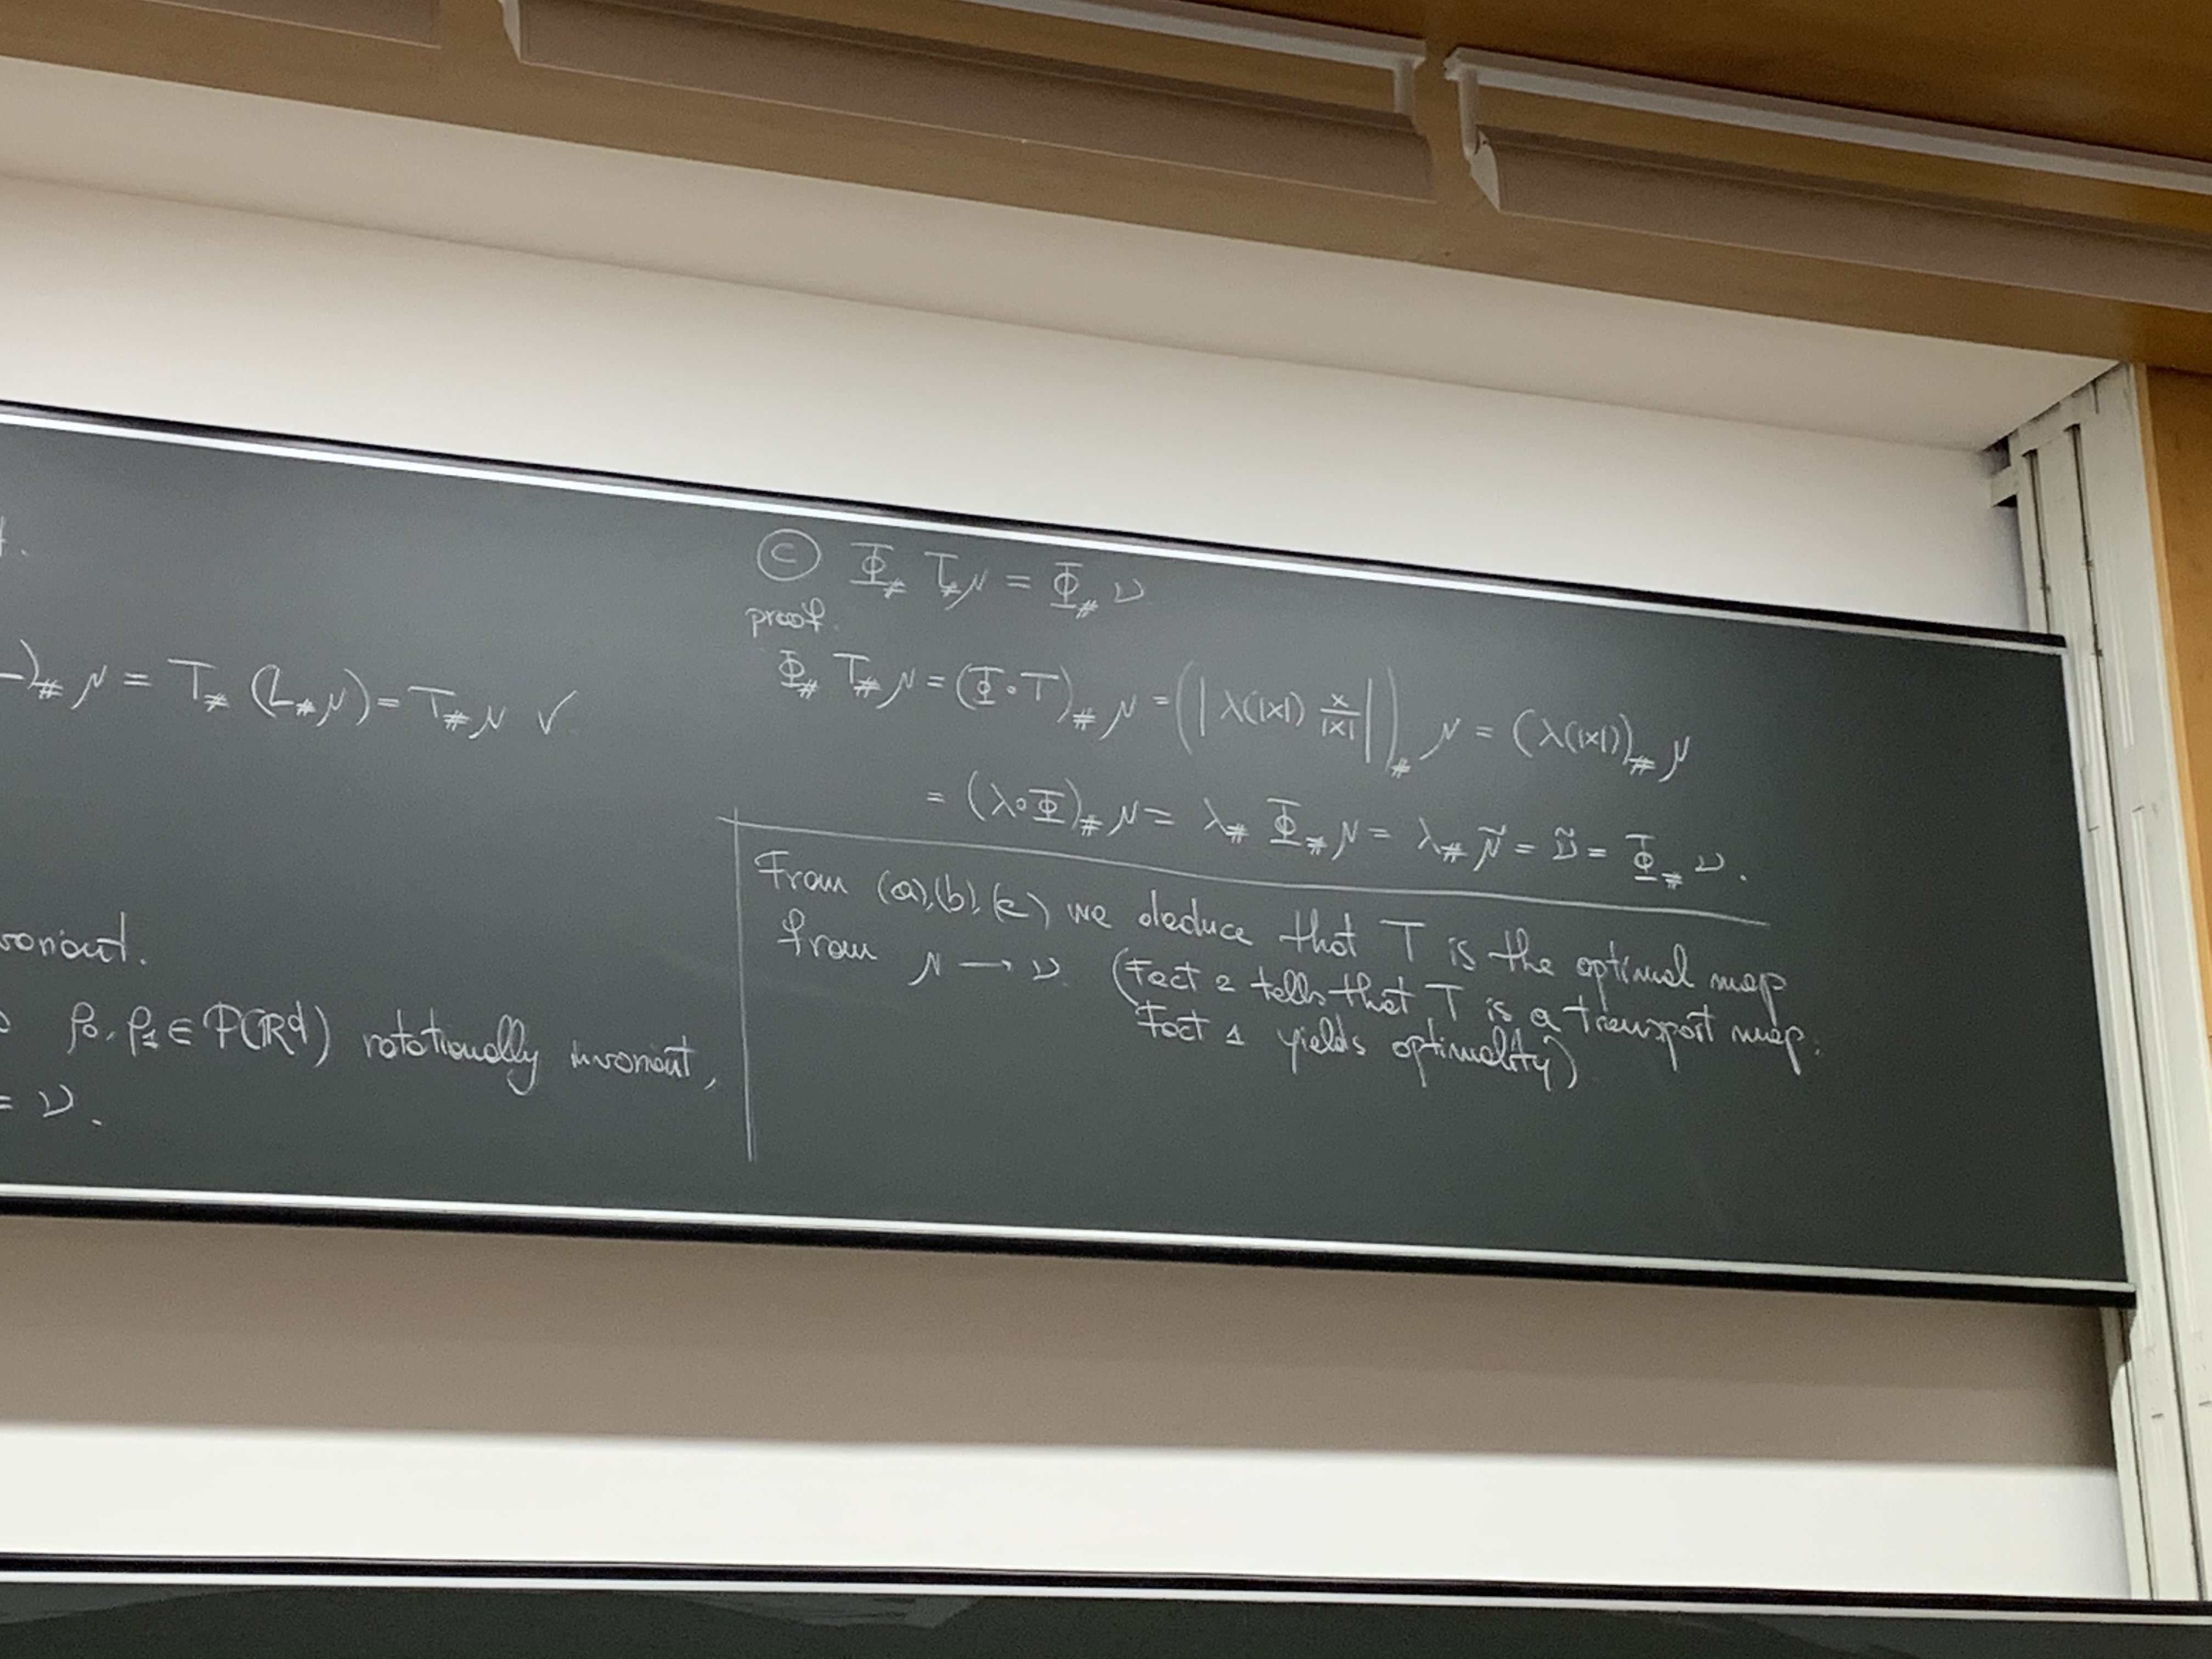 t.
)_# μ = T_# (L_# μ) = T_# μ ✓
variant.
ρ₀, ρ₁ ∈ P(ℝᵈ) rotationally invariant,
= ν.
(c) Φ_# T_# μ = Φ_# ν
proof.
Φ_# T_# μ = (Φ∘T)_# μ = (|λ(|x|) x/|x||)_# μ = (λ(|x|))_# μ
= (λ∘Φ)_# μ = λ_# Φ_# μ = λ_# μ̃ = ν̃ = Φ_# ν.
From (a), (b), (c) we deduce that T is the optimal map
from μ → ν. (Fact 2 tells that T is a transport map.
Fact 1 yields optimality)